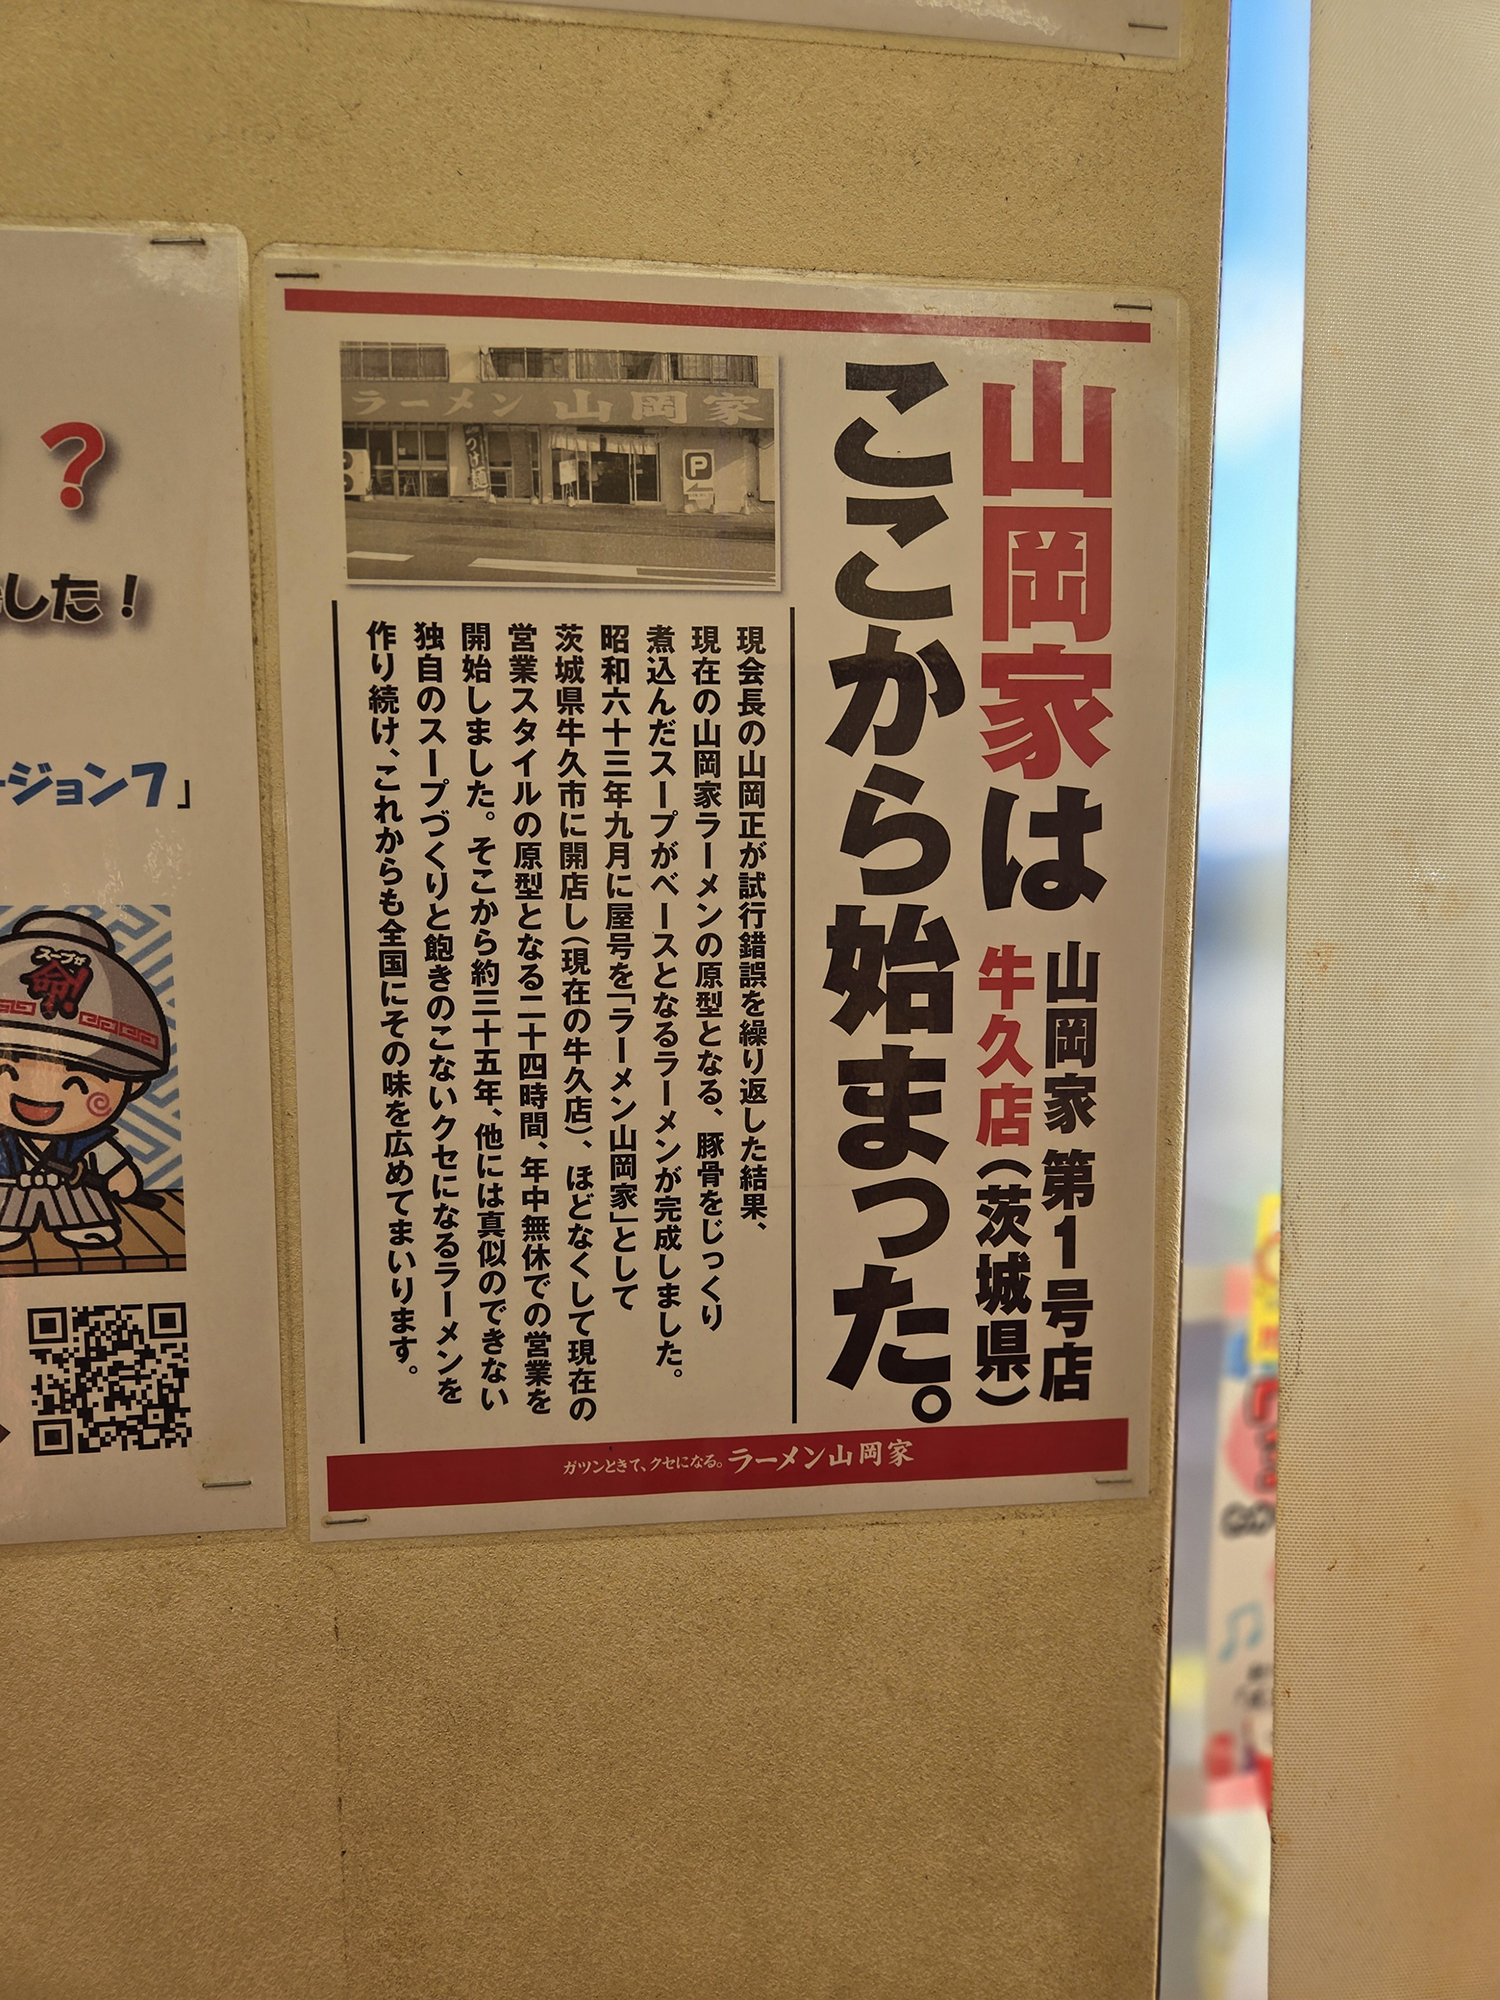 山岡家は
山岡家 第1号店
牛久店(茨城県)
ここから始まった。
ラーメン 山岡家
つけ麺
P
現会長の山岡正が試行錯誤を繰り返した結果、
現在の山岡家ラーメンの原型となる、豚骨をじっくり
煮込んだスープがベースとなるラーメンが完成しました。
昭和六十三年九月に屋号を「ラーメン山岡家」として
茨城県牛久市に開店し(現在の牛久店)、ほどなくして現在の
営業スタイルの原型となる二十四時間、年中無休での営業を
開始しました。そこから約三十五年、他には真似のできない
独自のスープづくりと飽きのこないクセになるラーメンを
作り続け、これからも全国にその味を広めてまいります。
ガツンときて、クセになる。ラーメン山岡家
?
した!
ージョン7」
スープが
命!